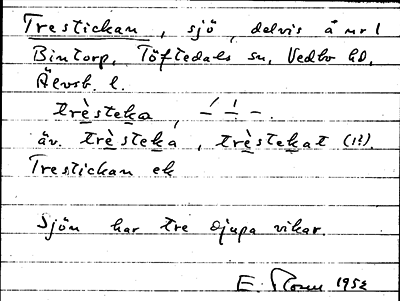 Trestickan, sjö, delvis å nr 1
Bintorp, Töftedals sn, Vedbo hd,
Älvsb. l.
trèsteka, – ́ – ̀ – .
äv. trèsteka, trèstekat (1?).
Trestickan ek
Sjön har tre djupa vikar.
E. 1952